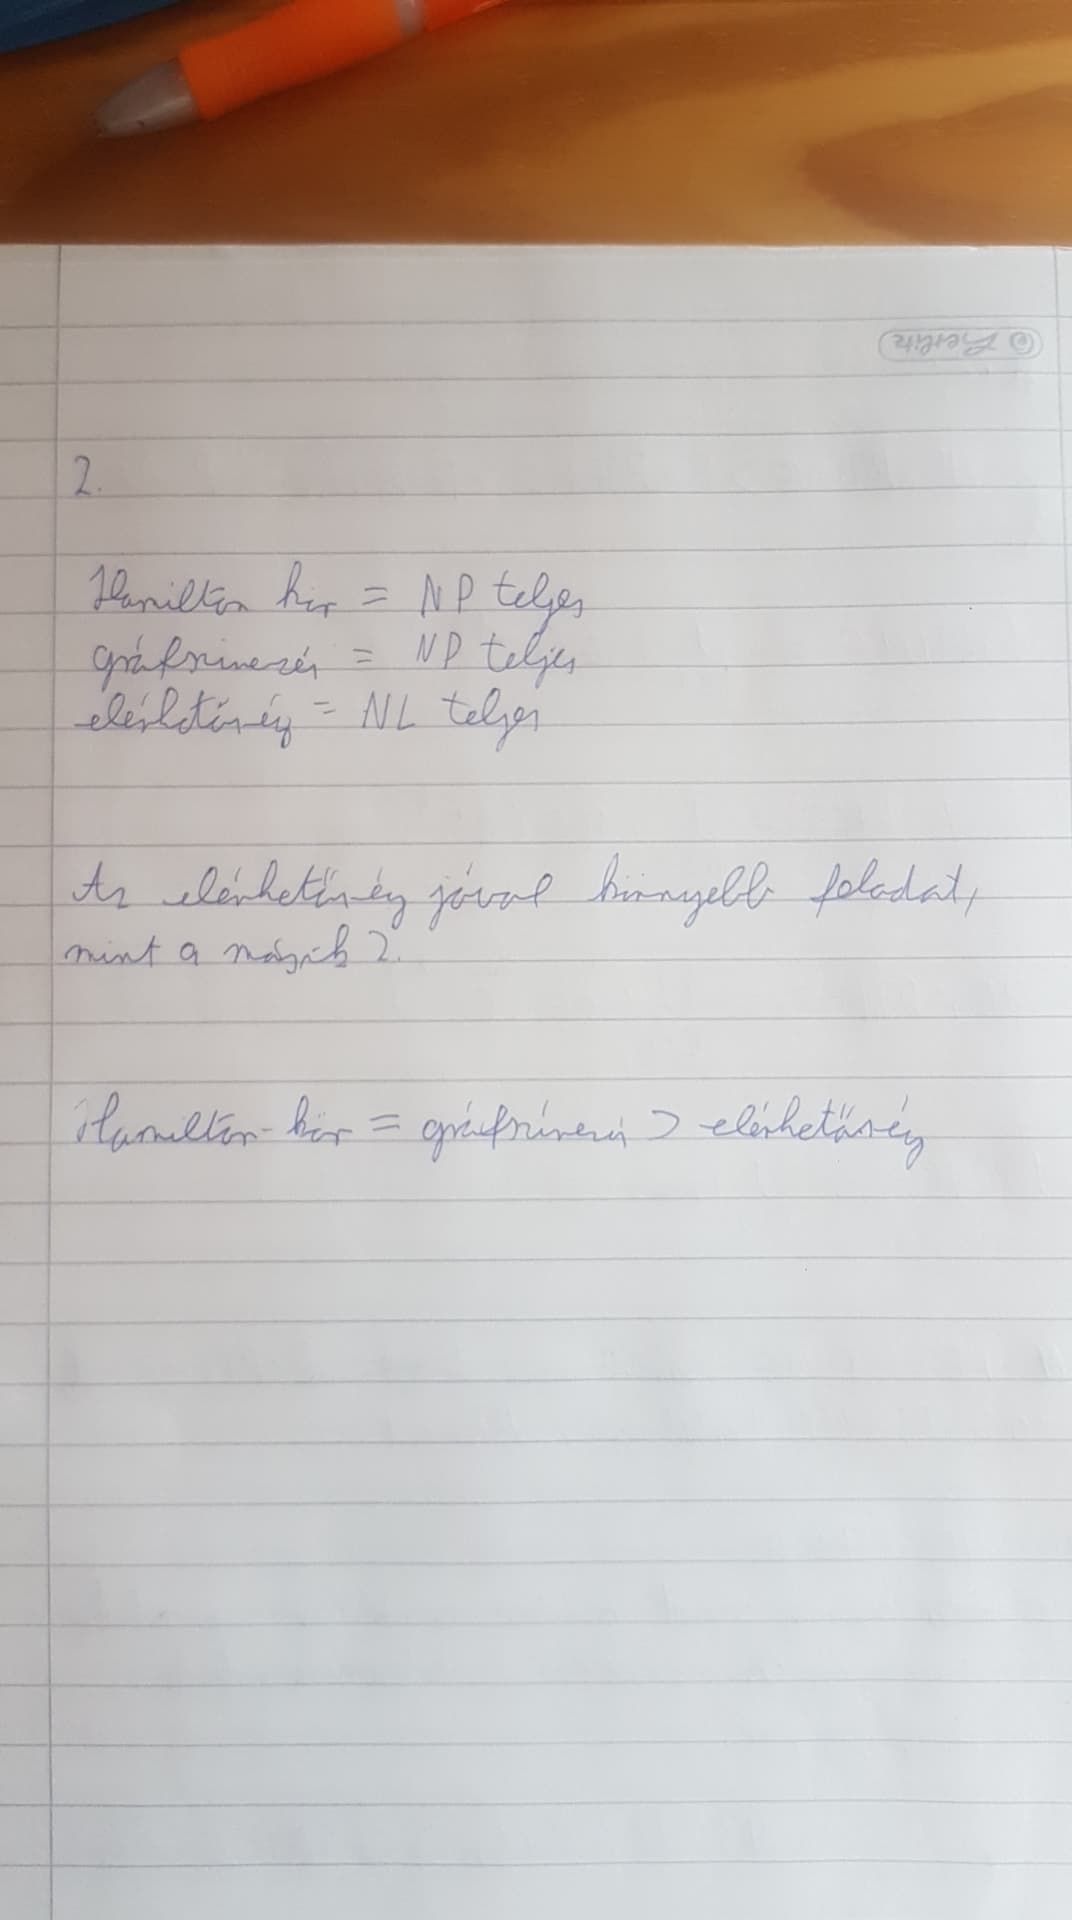 © Herlitz
2.
Hamilton kör = NP teljes
gráfszinezés = NP teljes
elérhetőség = NL teljes
Az elérhetőség jóval könnyebb feladat,
mint a másik 2.
Hamilton-kör = gráfszínezés > elérhetőség